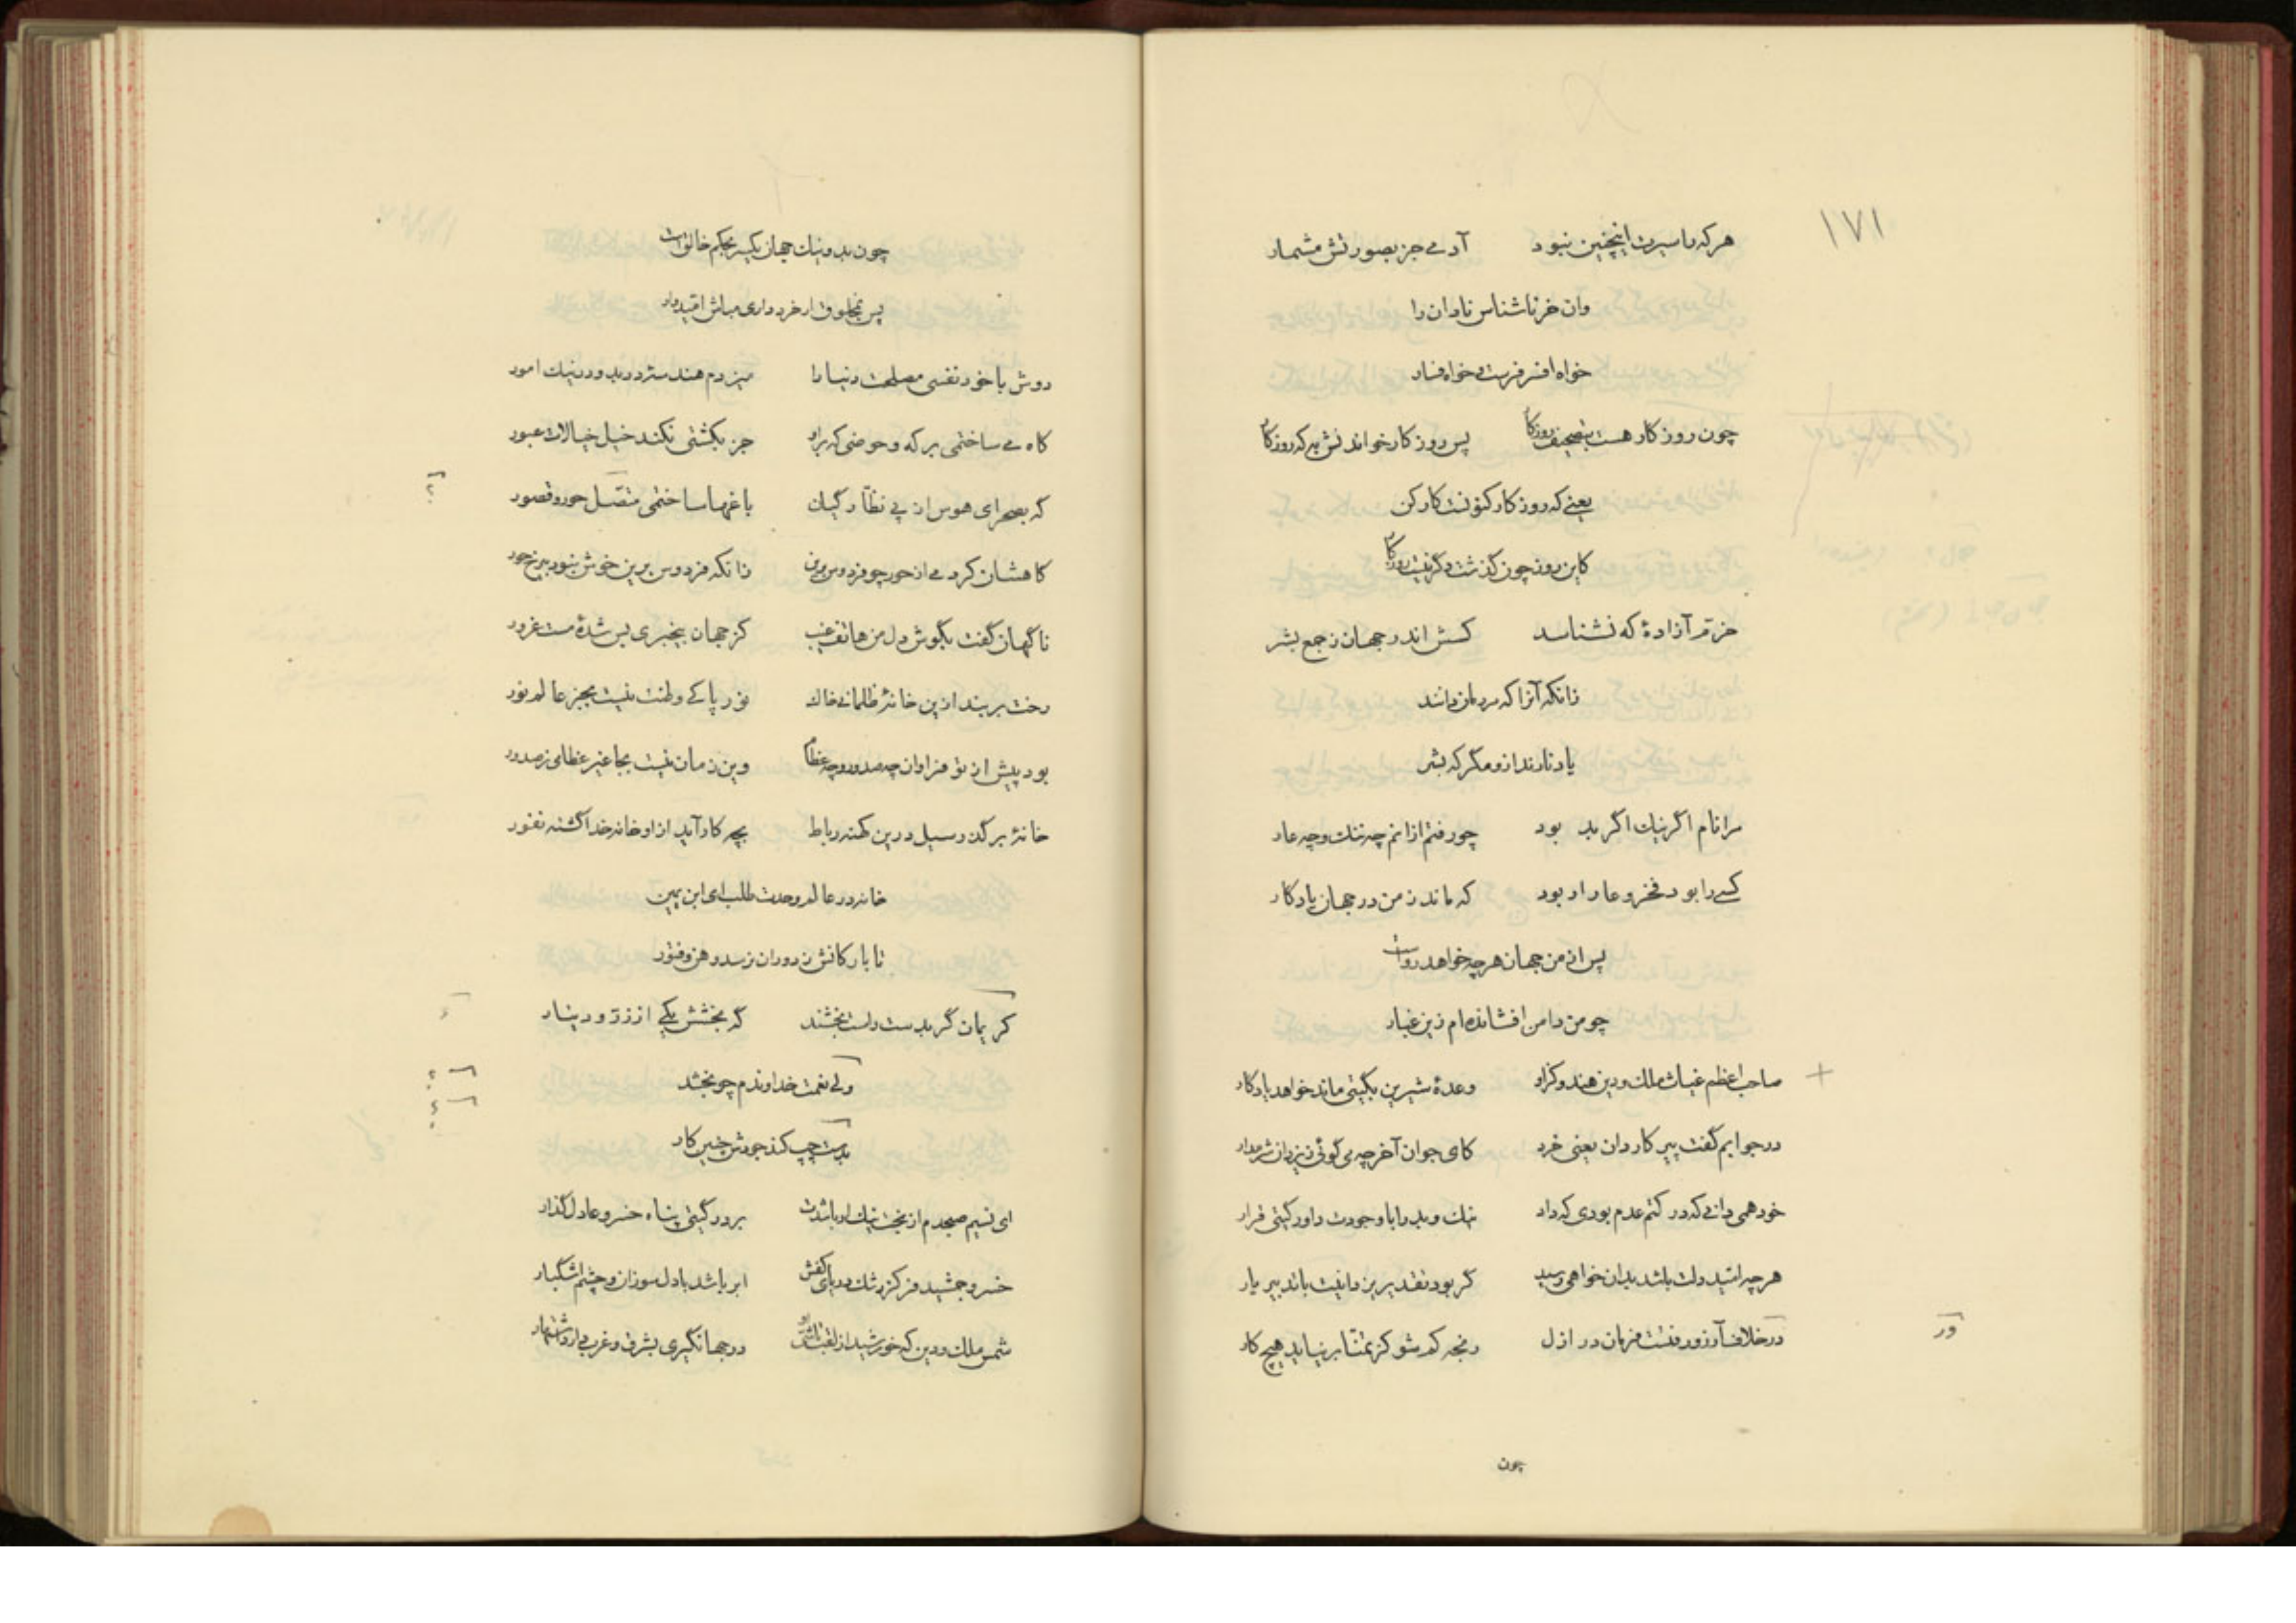 ۱۷۱
هر که را سیرت اینچنین نبود آدمے جز بصورتش مشمار
وان خر ناشناس نادان را
خواه افسر فرست و خواه فسار
چون روزکار هست بتصحیف روزکار پس روزکار خواندنش به که روزکار
یعنے که روز کار کنونست کار کن
کاین روز چون گذشت دگر نیست روزکار
خرّم آزادهٔ که نشناسد کسش اندر جهان ز جمع بشر
زانکه آنرا که مردمان دانند
یاد نارند ازو مگر که بشر
مرا نام اگر نیك اگر بد بود چو رفتم ازانم چه ننك و چه عار
کسے را بود فخر و عار ار بود که ماند ز من در جهان یادکار
پس از من جهان هر چه خواهد رواست
چو من دامن افشانده ام زین غبار
صاحب اعظم غیاث ملك و دین هندو کزاو وعدهٔ شیرین بگیتی ماند خواهد یادکار
در جوابم گفت پیر کاردان یعنی خرد کای جوان آخر چه می گوئی ز یزدان شرم دار
خود همی دانے که در کتم عدم بودی که داد نیك و بد را با وجودت داور گیتی قرار
هر چه امّید دلت باشد بدان خواهی رسید گر بود تقدیر یزدانیت باندبیر یار
در خلاف آرزو رفتست فرمان در ازل رنجه کم شو کز تمنّا بر نیاید هیچ کار
ور
چون
چون بد و نیك جهان یکسر بحکم خالق است
پس بمخلوق ار خرد داری مباش امّیدوار
دوش با خود نفسی مصلحت دنیا را میزدم هندسهٔ در بد و در نیك امور
کاه مے ساختمی برکه و حوضی که براو جز بکشتی نکند خیل خیالات عبور
گه بصحرای هوس از پے نظّارگیان باغها ساختمی متّصل حور و قصور
کاهشان کردمے از حور چو فردوس برین زانکه فردوس برین خوش نبود بی رخ حور
ناگهان گفت بگوش دل من هاتف غیب کز جهان بیخبری بس شدهٔ مست غرور
رخت بربند ازین خانهٔ ظلمانے خاك نور پاکے وطنت نیست بجز عالم نور
بود پیش از تو فراوان چه صدور و چه عظام وین زمان نیست بجا غیر عظامی ز صدور
خانهٔ بر گذر سیل درین کهنه رباط بچه کار آید از او خانه خدا گشته نفور
خانه در عالم وحدت طلب ای ابن یمین
تا بارکانش ز دوران نرسد وهن و فتور
کریمان گر بدست راست بخشند گه بخشش یکے از زرّ و دینار
ولے نعمت خداوندم چو بخشد
بدست چپ کند جودش چنین کار
ای نسیم صبحدم از بخت نیك ار باشدت بر در گیتی پناه خسرو عادل گذار
خسرو جمشید فر کز رشك دریای کفش ابر باشد با دل سوزان و چشم اشگبار
شمس ملك و دین که خورشید از لقب تاشی او در جهانگیری بشرق و غرب دارد اشتهار